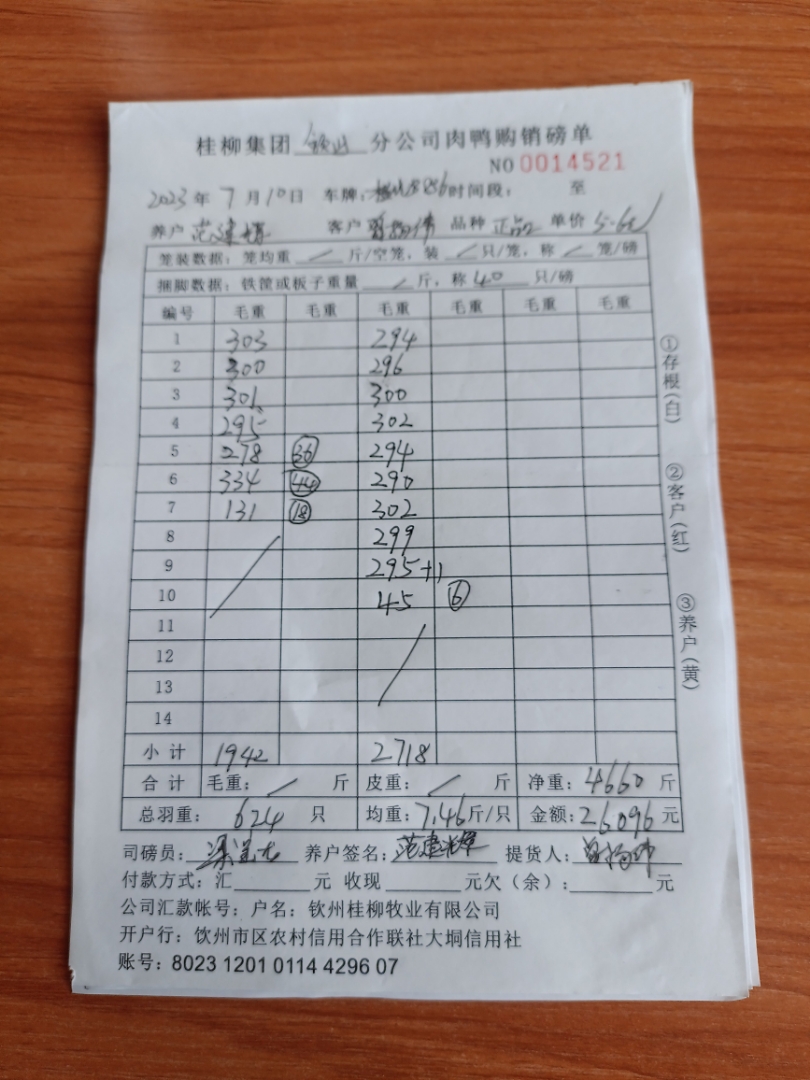 桂柳集团 钦州 分公司肉鸭购销磅单
NO 0014521
2023年 7月10日 车牌: 时间段: 至
养户 范建辉 客户 品种 正品 单价 5.6元
笼装数据:笼均重 / 斤/空笼,装 / 只/笼,称 / 笼/磅
捆脚数据:铁筐或板子重量 / 斤,称 40 只/磅
编号 毛重 毛重 毛重 毛重 毛重 毛重
1 303 294
2 300 296
3 301 300
4 295 302
5 278 36 294
6 334 44 290
7 131 18 302
8 299
9 295+1
10 45 6
11
12
13
14
小计 1942 2718
合计 毛重: / 斤 皮重: / 斤 净重: 4660 斤
总羽重: 624 只 均重: 7.46斤/只 金额: 26096 元
司磅员: 养户签名: 范建辉 提货人:
付款方式:汇 元 收现 元欠(余): 元
公司汇款帐号:户名:钦州桂柳牧业有限公司
开户行:钦州市区农村信用合作联社大垌信用社
账号:8023 1201 0114 4296 07
①存根(白)
②客户(红)
③养户(黄)